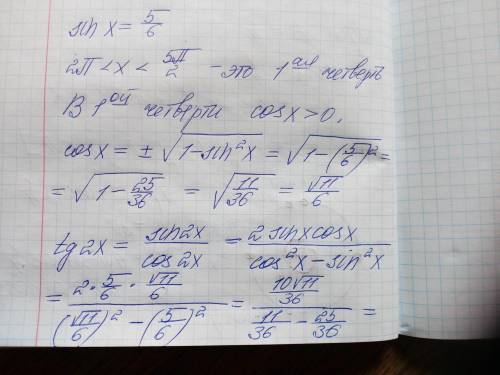 sin x = 5/6
2π < x < 5π/2 – это 1ая четверть
В 1ой четверти cos x > 0.
cos x = ± √(1 – sin²x) = √(1 – (5/6)²) =
= √(1 – 25/36) = √(11/36) = √11/6
tg 2x = sin 2x / cos 2x = 2 sin x cos x / (cos²x – sin²x)
= (2 · 5/6 · √11/6) / ((√11/6)² – (5/6)²) = (10√11/36) / (11/36 – 25/36) =